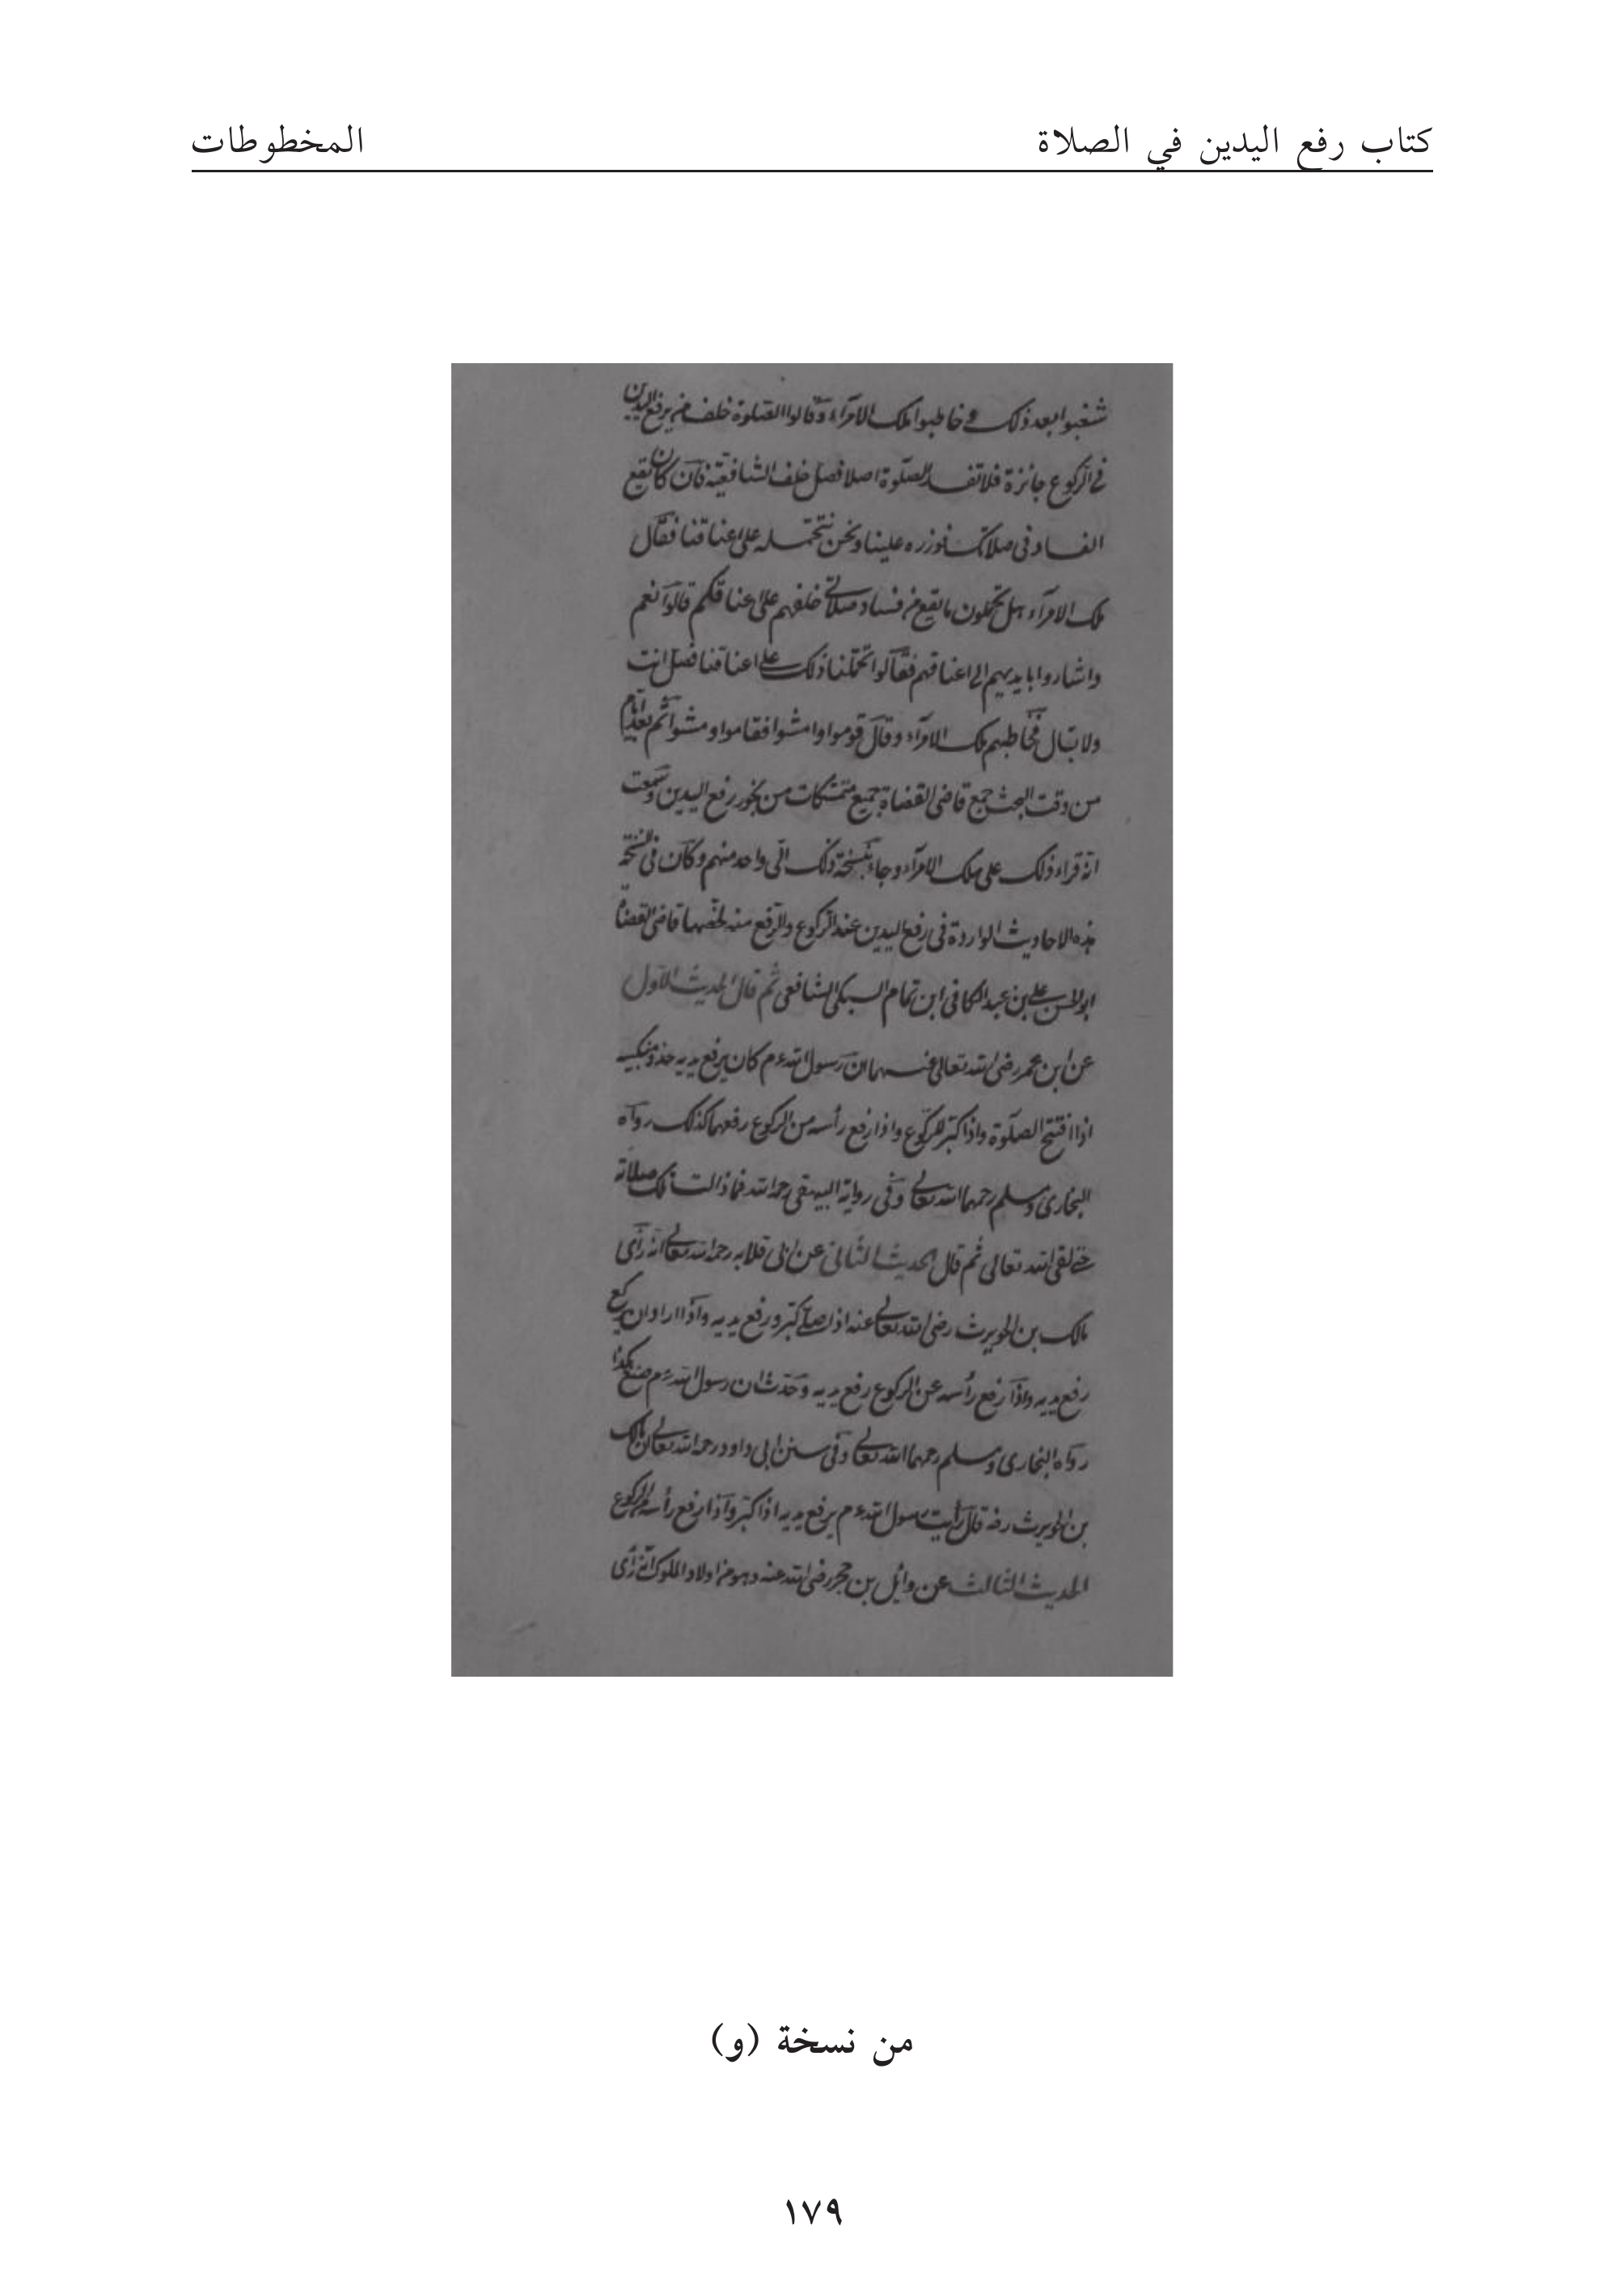 كتاب رفع اليدين في الصلاة
المخطوطات
شغبوا بعد ذلك وخاطبوا ملك الامرآء وقالوا الصلوة خلف من يرفع اليدين
في الركوع جائزة فلا تفسد الصلوة اصلا فصل خلف الشافعية فان كان يقع
الفساد في صلاتك فوزره علينا ونحن نتحمله على اعناقنا فقال
ملك الامرآء هل تحملون ما يقع من فساد صلاتي خلفهم على اعناقكم قالوا نعم
واشاروا بايديهم الى اعناقهم فقالوا تحملنا ذلك على اعناقنا فصل انت
ولا تبال فخاطبهم ملك الامرآء وقال قوموا وامشوا فقاموا ومشوا ثم بعد ايام
من وقت البحث جمع قاضي القضاة جميع متمسكات من يجوز رفع اليدين وسمعت
انه قراء ذلك على ملك الامرآء وجاء بنسخة ذلك الى واحد منهم وكان في النسخة
هذه الاحاديث الواردة في رفع اليدين عند الركوع والرفع منه لخصها قاضي القضاة
ابو الحسن علي بن عبد الكافي ابن تمام السبكي الشافعي ثم قال الحديث الاول
عن ابن عمر رضي الله تعالى عنهما ان رسول الله ءم كان يرفع يديه حذو منكبيه
اذا افتتح الصلوة واذا كبر للركوع واذا رفع رأسه من الركوع رفعهما كذلك رواه
البخاري ومسلم رحمهما الله تعالى وفي رواية البيهقي رحمه الله فما زالت تلك صلاته
حتى لقى الله تعالى ثم قال الحديث الثاني عن ابي قلابه رحمه الله تعالى انه رأى
مالك بن الحويرث رضي الله تعالى عنه اذا صلى كبر ورفع يديه واذا اراد ان يركع
رفع يديه واذا رفع رأسه عن الركوع رفع يديه وحدث ان رسول الله ءم صنع هكذا
رواه البخاري ومسلم رحمهما الله تعالى وفي سنن ابي داود رحمه الله تعالى ان مالك
بن الحويرث رضه قال رأيت رسول الله ءم يرفع يديه اذا كبر واذا رفع رأسه من الركوع
الحديث الثالث عن وائل بن حجر رضي الله عنه وهو من اولاد الملوك انه رأى
من نسخة (و)
١٧٩